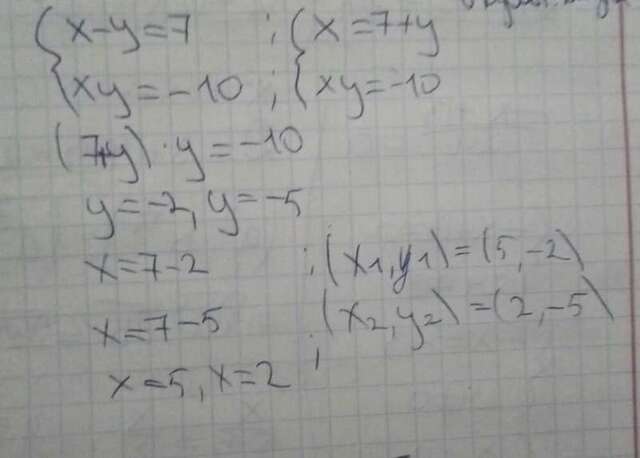 {x-y=7 ; {x=7+y
{xy=-10 ; {xy=-10
(7+y)·y=-10
y=-2, y=-5
x=7-2 ; (x1,y1)=(5,-2)
x=7-5 ; (x2,y2)=(2,-5)
x=5, x=2